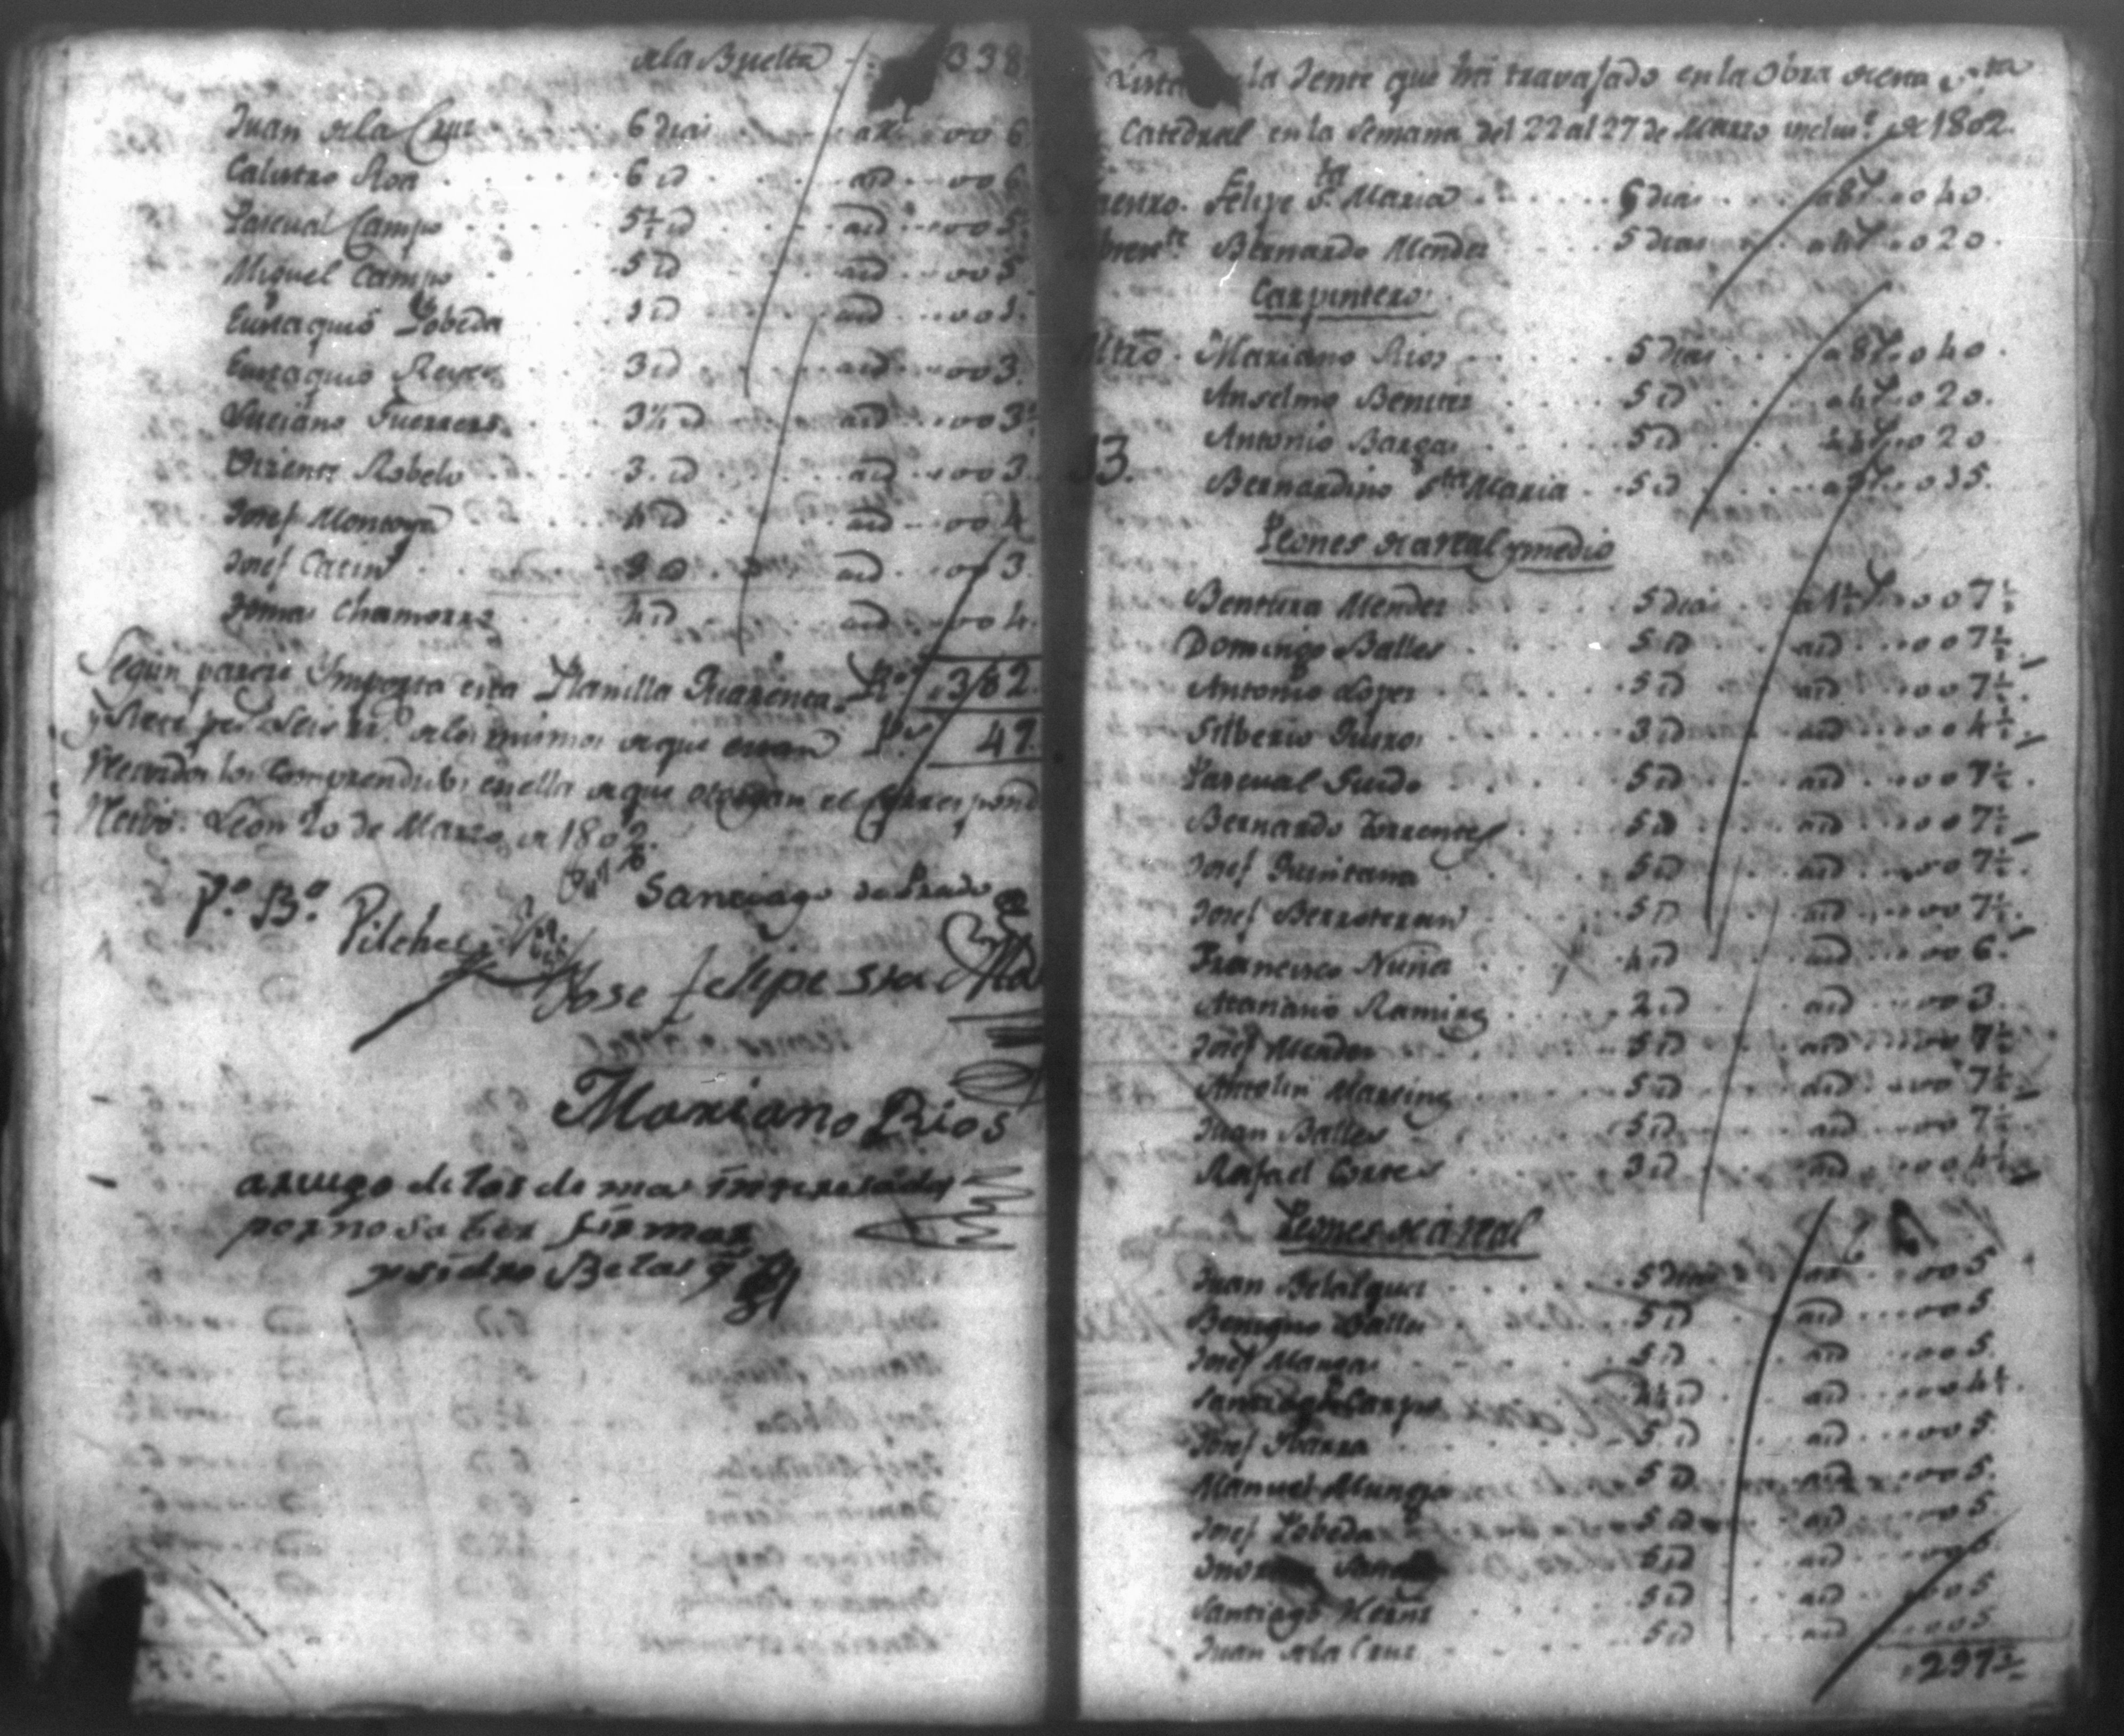 a la Buelta 338
Juan de la Cruz 6 dias a 1 rl 006
Calistro Roa 6 id id 006
Pascual Campo 5½ id id 005½
Miguel Campo 5 id id 005
Eustaquio Pobeda id
Eustaquio Reyes 3 id id 003
Luciano Guerrero 3½ id id 003½
Vizente Robelo 3 id id 003
Josef Montoya 4 id id 004
Josef Catin 3 id id 003
Tomas Chamorro 4 id id 004
Segun parece Importa esta Planilla Quarenta Rs 382
y Siete ps Seis rrs a los mismos a que estan Ps 47
los Comprendidos en ella de que otorgan el Correspond
Recivo. Leon 20 de Marzo de 1802.
Santiago de Prado
Vo. Bo.
Pilchez
Jose felipe Sta Ma
Mariano Rios
a ruego de los de mas interesados
por no saber firmar
ysidro Belasqz
Lista la Jente que ha travajado en la Obra de esta Sta
Catedral en la Semana del 22 al 27 de Marzo inclue. de 1802.
Felipe Sta Maria 5 dias a 8 rs 040
Bernardo Mendez 5 dias a 4 rs 020
Carpinteros
Mtro. Mariano Rios 5 dias a 8 rs 040
Anselmo Benites 5 id a 4 rs 020
13. Antonio Bargas 5 id a 4 rs 020
Bernardino Sta Maria 5 id a 7 rs 035
Peones de a real y medio
Bentura Mendez 5 dias a 1½ rs 007½
Domingo Balles 5 id id 007½
Antonio Lopez 5 id id 007½
Silberio Quiros 3 id id 004½
Pascual Guido 5 id id 007½
Bernardo Torrentes 5 id id 007½
Josef Quintana 5 id id 007½
Josef Berroteran 5 id id 007½
Francisco Nuñez 4 id id 006
Mariano Ramirez 2 id id 003
Josef Mendez 5 id id 007½
Antolin Martinez 5 id id 007½
Juan Balles 5 id id 007½
Rafael Cortes 3 id id 004½
Peones de a real
Juan Belasquez 5 dias 005
Benigno Balles 5 id id 005
Josef Mangas 5 id id 005
Santiago Campo 4½ id id 004½
Josef Ibarra 5 id id 005
Manuel Mungia 5 id id 005
Josef Pobeda 5 id id 005
5 id id 005
Santiago 5 id id 005
Juan de la Cruz 5 id id 005
297½